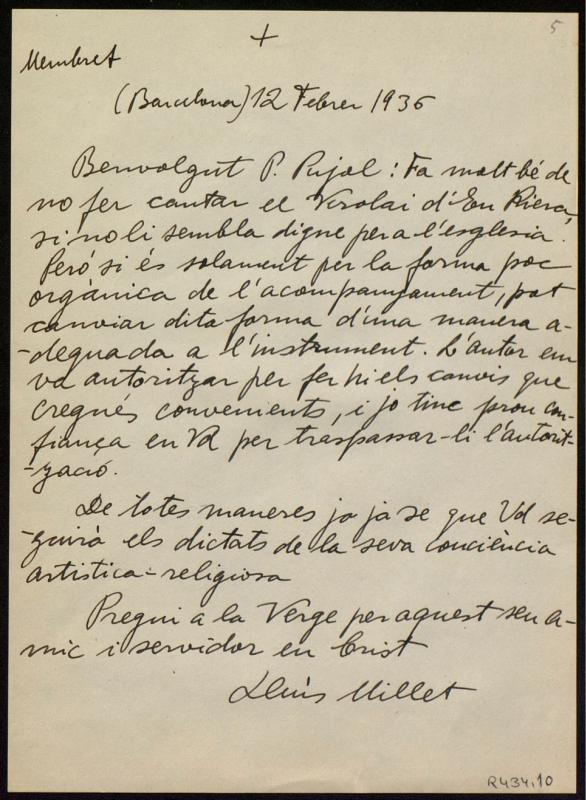 +
5
Membret
(Barcelona) 12 Febrer 1936
Benvolgut P. Pujol: Fa molt bé de
no fer cantar el Virolai d'En Riera,
si no li sembla digne per a l'església.
Però si és solament per la forma poc
orgànica de l'acompanyament, pot
canviar dita forma d'una manera a-
-deguada a l'instrument. L'autor em
va autoritzar per fer hi els canvis que
cregués convenients, i jo tinc prou con-
fiança en Vd per traspassar-li l'autorit-
-zació.
De totes maneres jo ja se que Vd se-
-guirà els dictats de la seva conciència
artistica-religiosa
Pregui a la Verge per aquest seu a-
-mic i servidor en Crist
Lluís Millet
R434,10